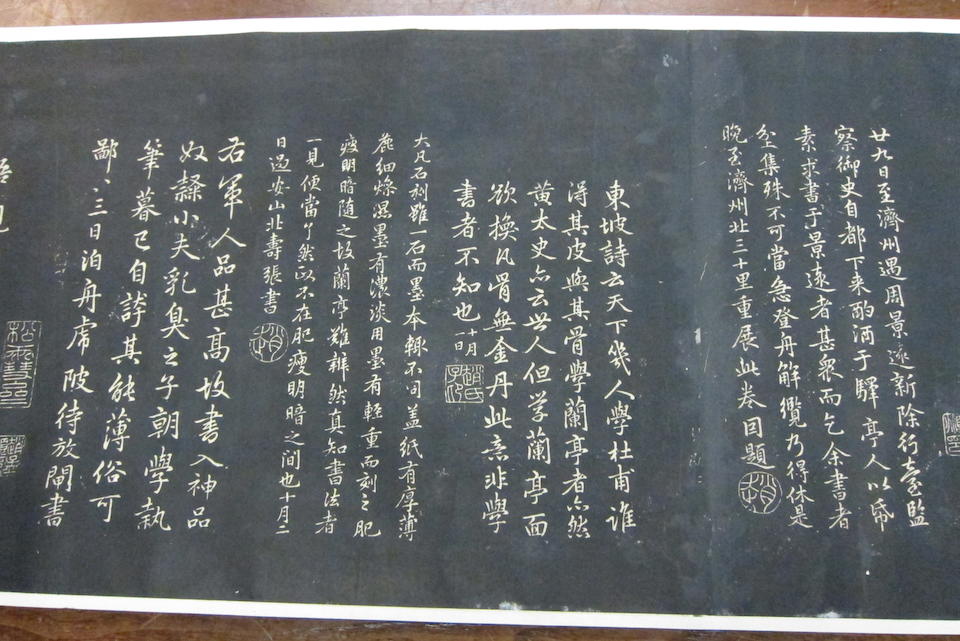 廿九日至濟州遇周景遠新除行臺監
察御史自都下来酌酒于驛亭人以帋
素求書于景遠者甚衆而乞余書者
坌集殊不可當急登舟解纜乃得休是
晚至濟州北三十里重展此卷因題
趙
東坡詩云天下幾人學杜甫誰
得其皮與其骨學蘭亭者亦然
黄太史亦云世人但学蘭亭面
欲換凡骨無金丹此意非學
書者不知也十月
一日
趙氏子昂
大凡石刻雖一石而墨本輒不同盖紙有厚薄
麁細燥濕墨有濃淡用墨有輕重而刻之肥
瘦明暗随之故蘭亭難辨然真知書法者
一見便當了然政不在肥瘦明暗之間也十月二
日過安山北壽張書
趙
右軍人品甚高故書入神品
奴隸小夫乳臭之子朝學執
筆暮已自誇其能薄俗可
鄙ヽ三日泊舟虎陂待放閘書
松雪齋